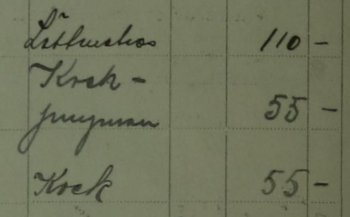 Lättmatros 110 -
Kock -
jungman 55 -
Kock 55 -